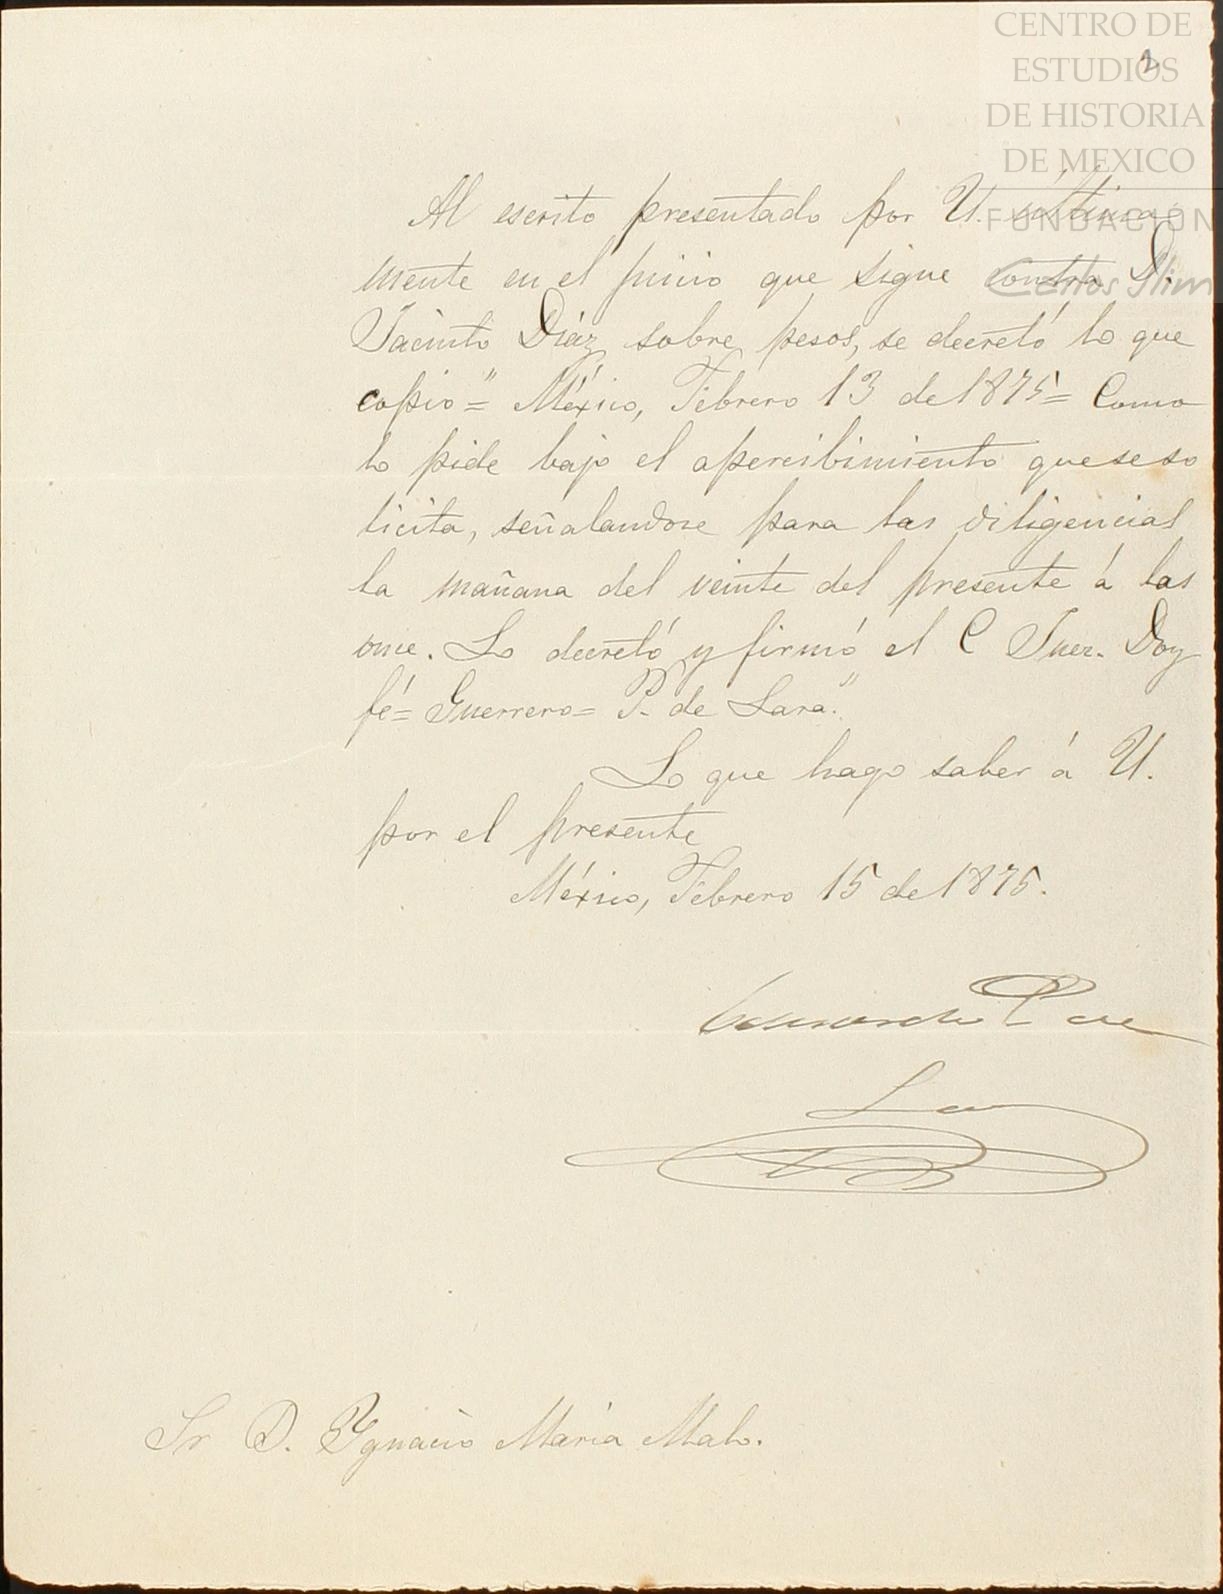 CENTRO DE
ESTUDIOS
DE HISTORIA
DE MEXICO
FUNDACIÓN
Carlos Slim
2
Al escrito presentado por U. última-
mente en el juicio que sigue contra D.
Jacinto Diáz sobre pesos, se decretó lo que
copio=" México, Febrero 13 de 1875= Como
lo pide bajo el apercibimiento que se so
licita, señalandose para las diligencias
la mañana del veinte del presente á las
once. Lo decretó y firmó el C Juez. Doy
fé= Guerrero= P. de Lara."
Lo que hago saber á U.
por el presente
México, Febrero 15 de 1875.
Lara
Sr D. Ygnacio María Malo.